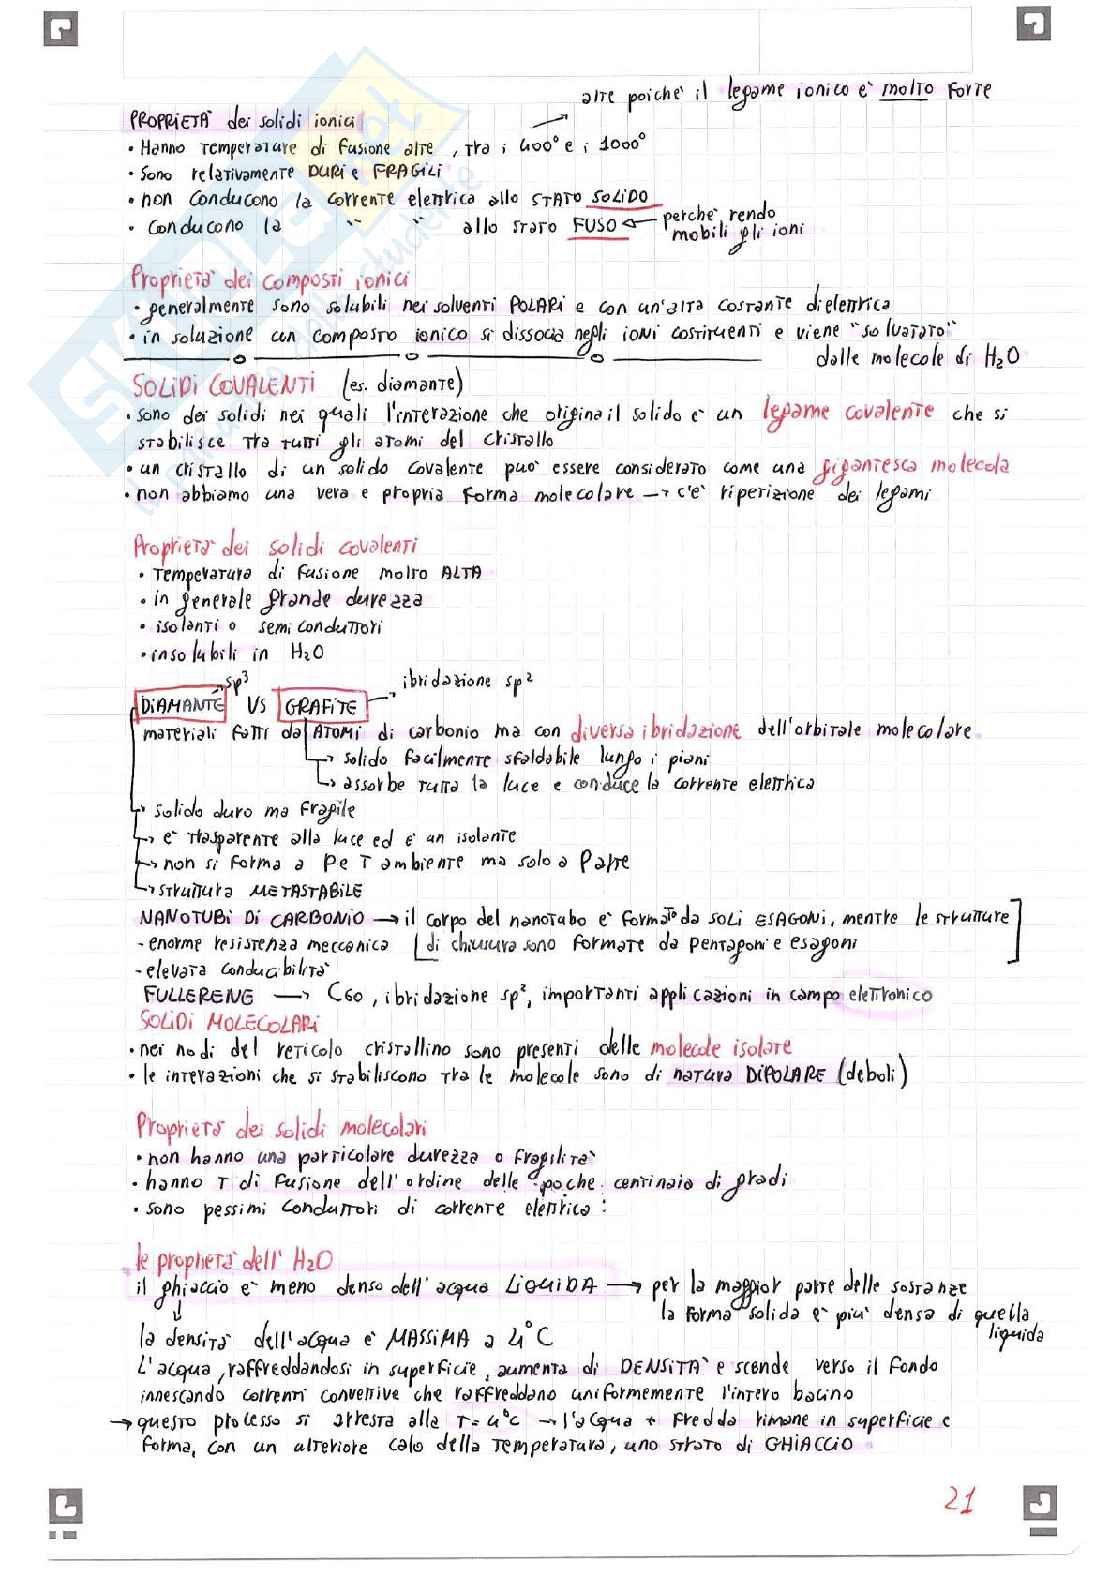 alte poichè il legame ionico è molto forte
PROPRIETÀ dei solidi ionici
• Hanno temperature di fusione alte, tra i 400° e i 1000°
• Sono relativamente DURI e FRAGILI
• non conducono la corrente elettrica allo STATO SOLIDO
• conducono la " " allo stato FUSO ← perchè rendo
mobili gli ioni
Proprietà dei composti ionici
• generalmente sono solubili nei solventi POLARI e con un'alta costante dielettrica
• in soluzione un composto ionico si dissocia negli ioni costituenti e viene "solvatato"
dalle molecole di H2O
SOLIDI COVALENTI (es. diamante)
• sono dei solidi nei quali l'interazione che origina il solido è un legame covalente che si
stabilisce tra tutti gli atomi del cristallo
• un cristallo di un solido covalente può essere considerato come una gigantesca molecola
• non abbiamo una vera e propria forma molecolare → c'è ripetizione dei legami
Proprietà dei solidi covalenti
• Temperatura di fusione molto ALTA
• in generale grande durezza
• isolanti o semiconduttori
• insolubili in H2O
sp3
ibridazione sp2
DIAMANTE VS GRAFITE
materiali fatti da ATOMI di carbonio ma con diversa ibridazione dell'orbitale molecolare.
→ solido facilmente sfaldabile lungo i piani
→ assorbe tutta la luce e conduce la corrente elettrica
→ solido duro ma fragile
→ è trasparente alla luce ed è un isolante
→ non si forma a P e T ambiente ma solo a P alte
→ struttura METASTABILE
NANOTUBI DI CARBONIO → il corpo del nanotubo è formato da SOLI ESAGONI, mentre le strutture
- enorme resistenza meccanica di chiusura sono formate da pentagoni e esagoni
- elevata conducibilità
FULLERENE → C60, ibridazione sp2, importanti applicazioni in campo elettronico
SOLIDI MOLECOLARI
• nei nodi del reticolo cristallino sono presenti delle molecole isolate
• le interazioni che si stabiliscono tra le molecole sono di natura DIPOLARE (deboli)
Proprietà dei solidi molecolari
• non hanno una particolare durezza o fragilità
• hanno T di fusione dell'ordine delle poche centinaia di gradi
• sono pessimi conduttori di corrente elettrica:
le proprietà dell' H2O
il ghiaccio è meno denso dell'acqua LIQUIDA → per la maggior parte delle sostanze
la forma solida è più densa di quella
liquida
la densità dell'acqua è MASSIMA a 4°C
L'acqua, raffreddandosi in superficie, aumenta di DENSITÀ e scende verso il fondo
innescando correnti convettive che raffreddano uniformemente l'intero bacino
→ questo processo si arresta alla T = 4°C → l'acqua + fredda rimane in superficie e
forma, con un ulteriore calo della temperatura, uno strato di GHIACCIO.
21